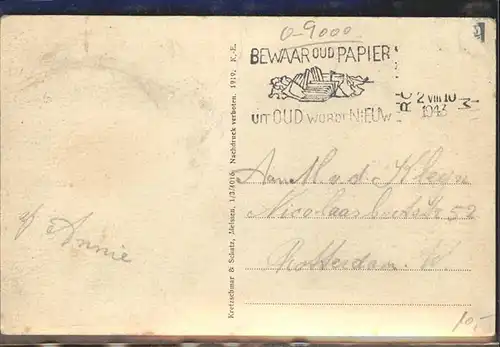 0-9000
BEWAAR OUD PAPIER
UIT OUD WORDT NIEUW
2 VIII 10
1943
Kretzschmar & Schatz, Meissen, 1/3/4016 Nachdruck verboten. 1919. K.-E.
Aan M. v. d. Kleyn
52
Rotterdam. W.
Annie
10,-